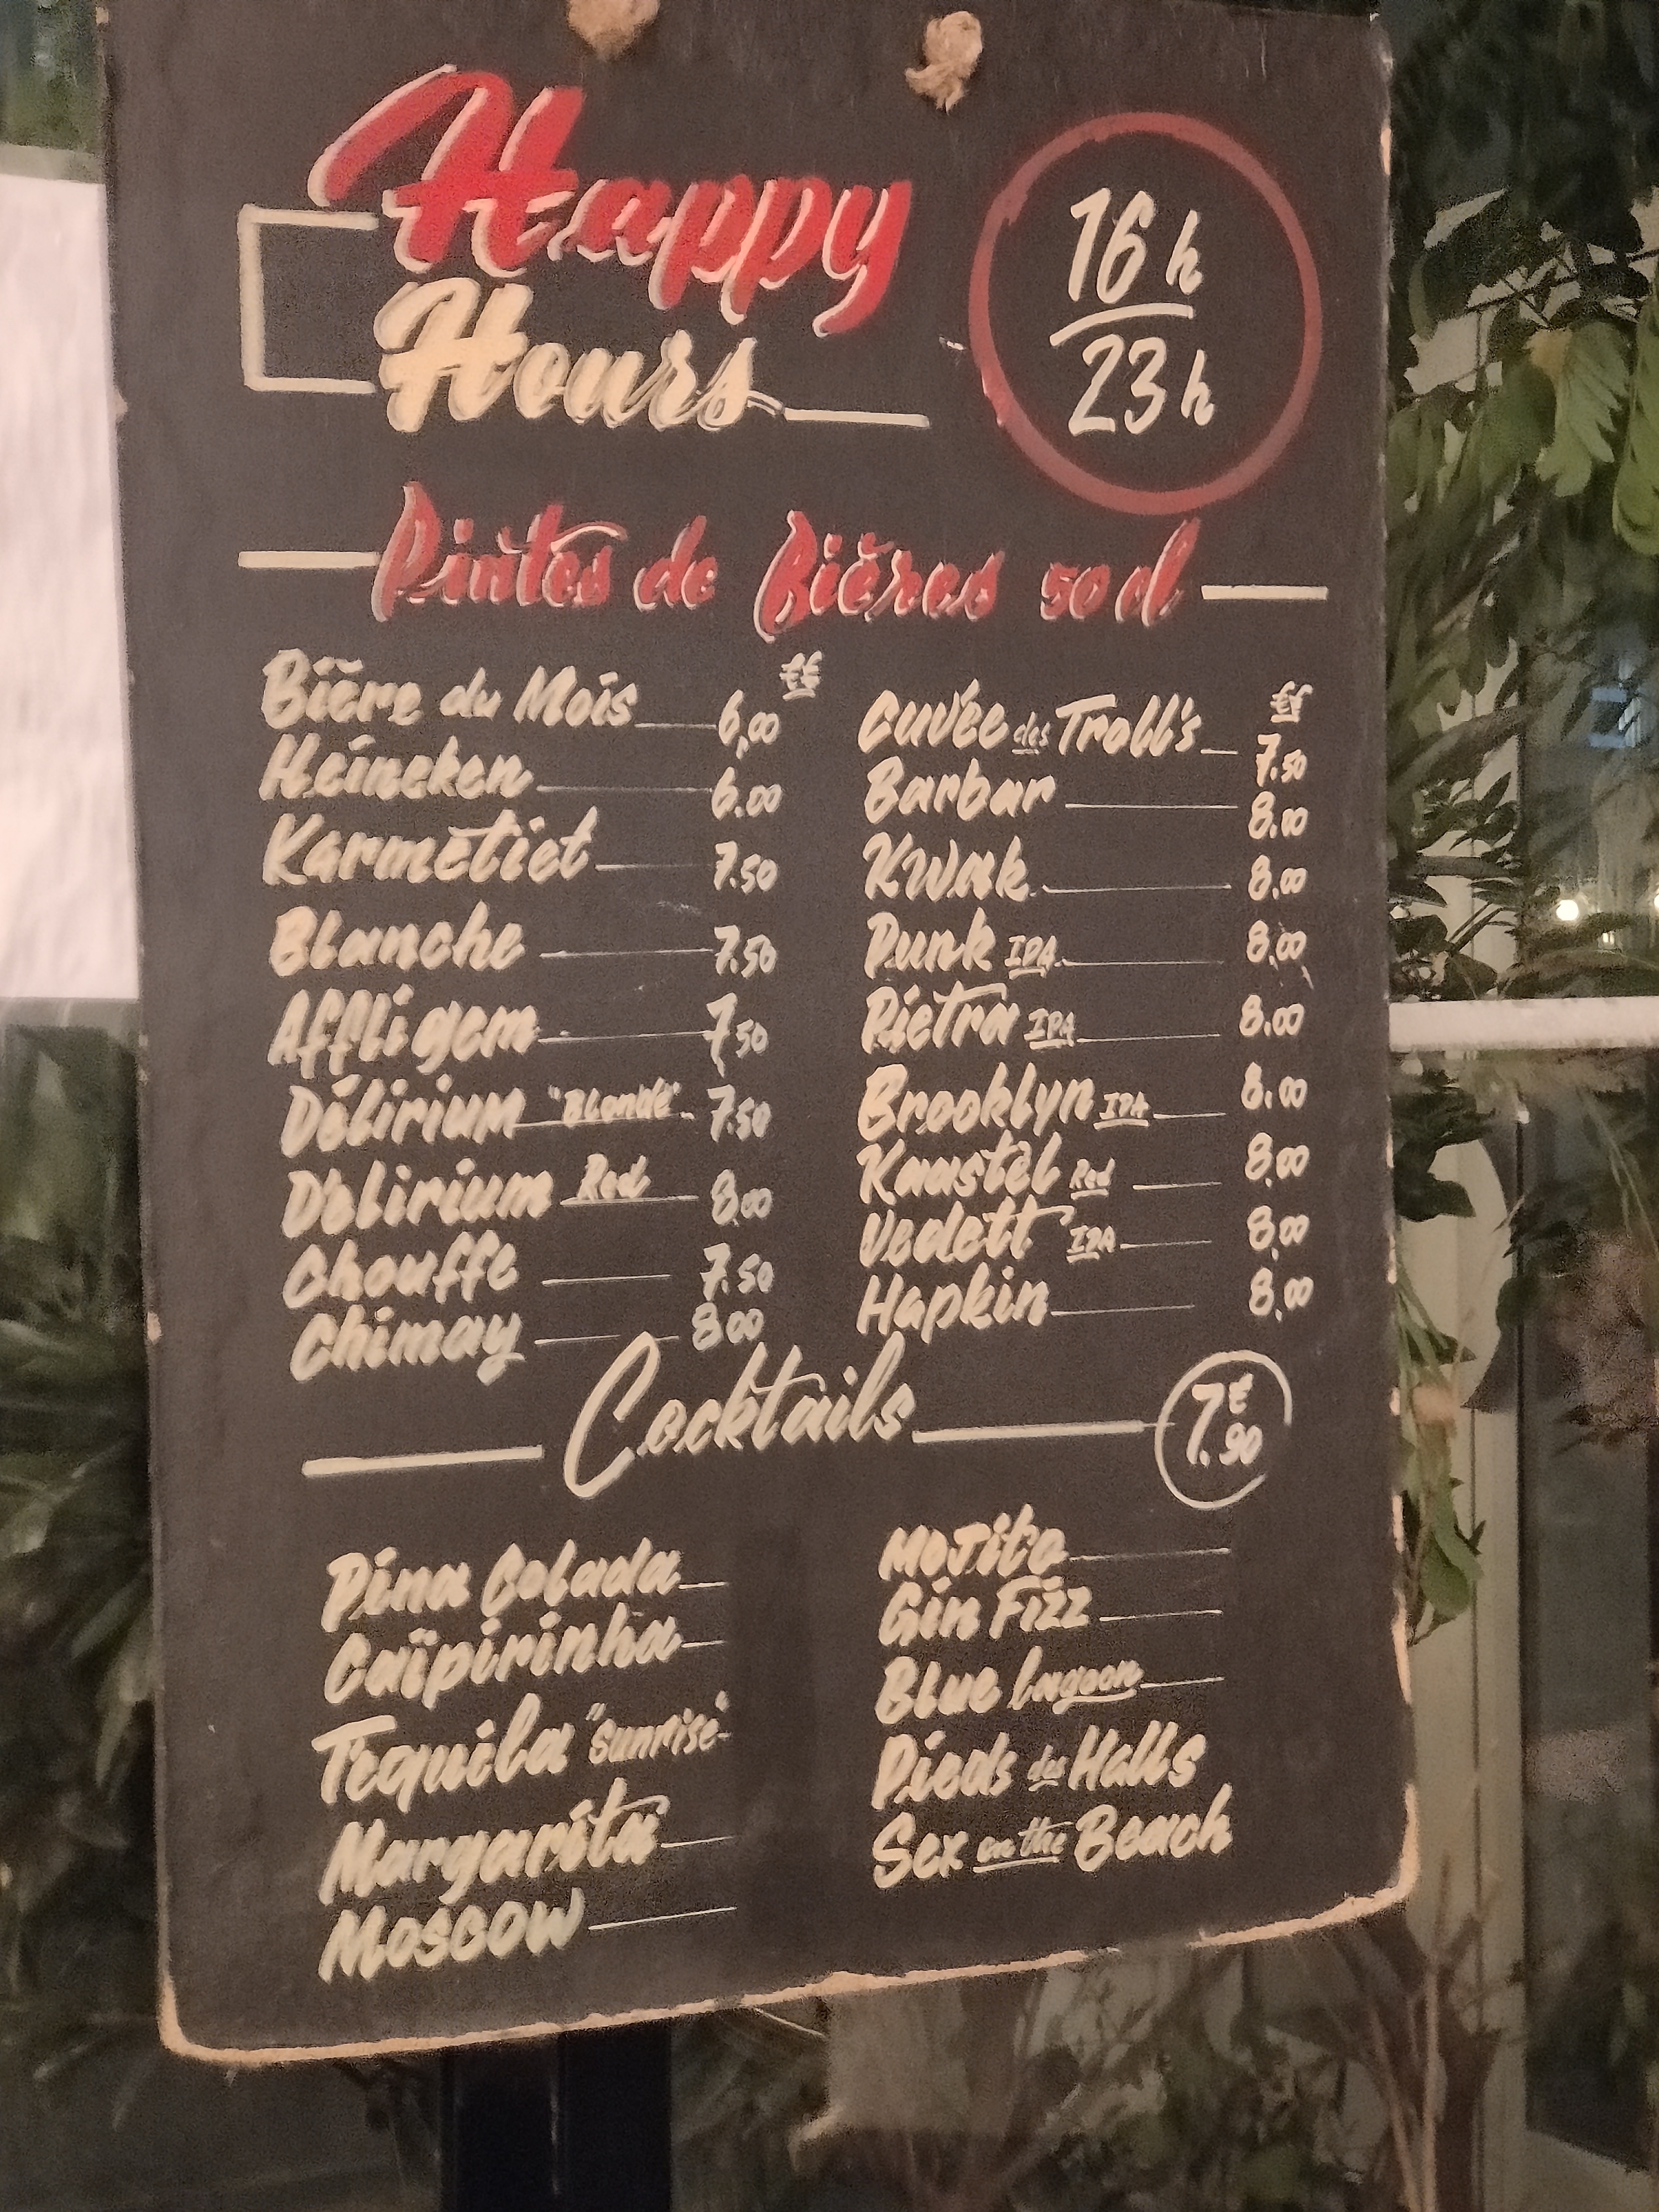 Happy
Hours
16h
23h
Pintes de Bières 50 cl
€€
Bière du Mois 6,00
Heineken 6.00
Karmétiet 7.50
Blanche 7.50
Affligem 7,50
Délirium "Blonde" 7.50
Délirium Red 8,00
Chouffe 7.50
Chimay 8 00
€€
Cuvée des Troll's 7.50
Barbar 8.00
KWak 8.00
Punk IPA 8,00
Pietra IPA 8.00
Brooklyn IPA 8,00
Kaastèl Red 8,00
Vedett IPA 8,00
Hapkin 8,00
Cocktails 7.€90
Pina Colada
Caïpirinha
Tequila "Sunrise"
Margarita
Moscow
MoJito
Gin Fizz
Blue lagoon
Pieds des Halls
Sex on the Beach